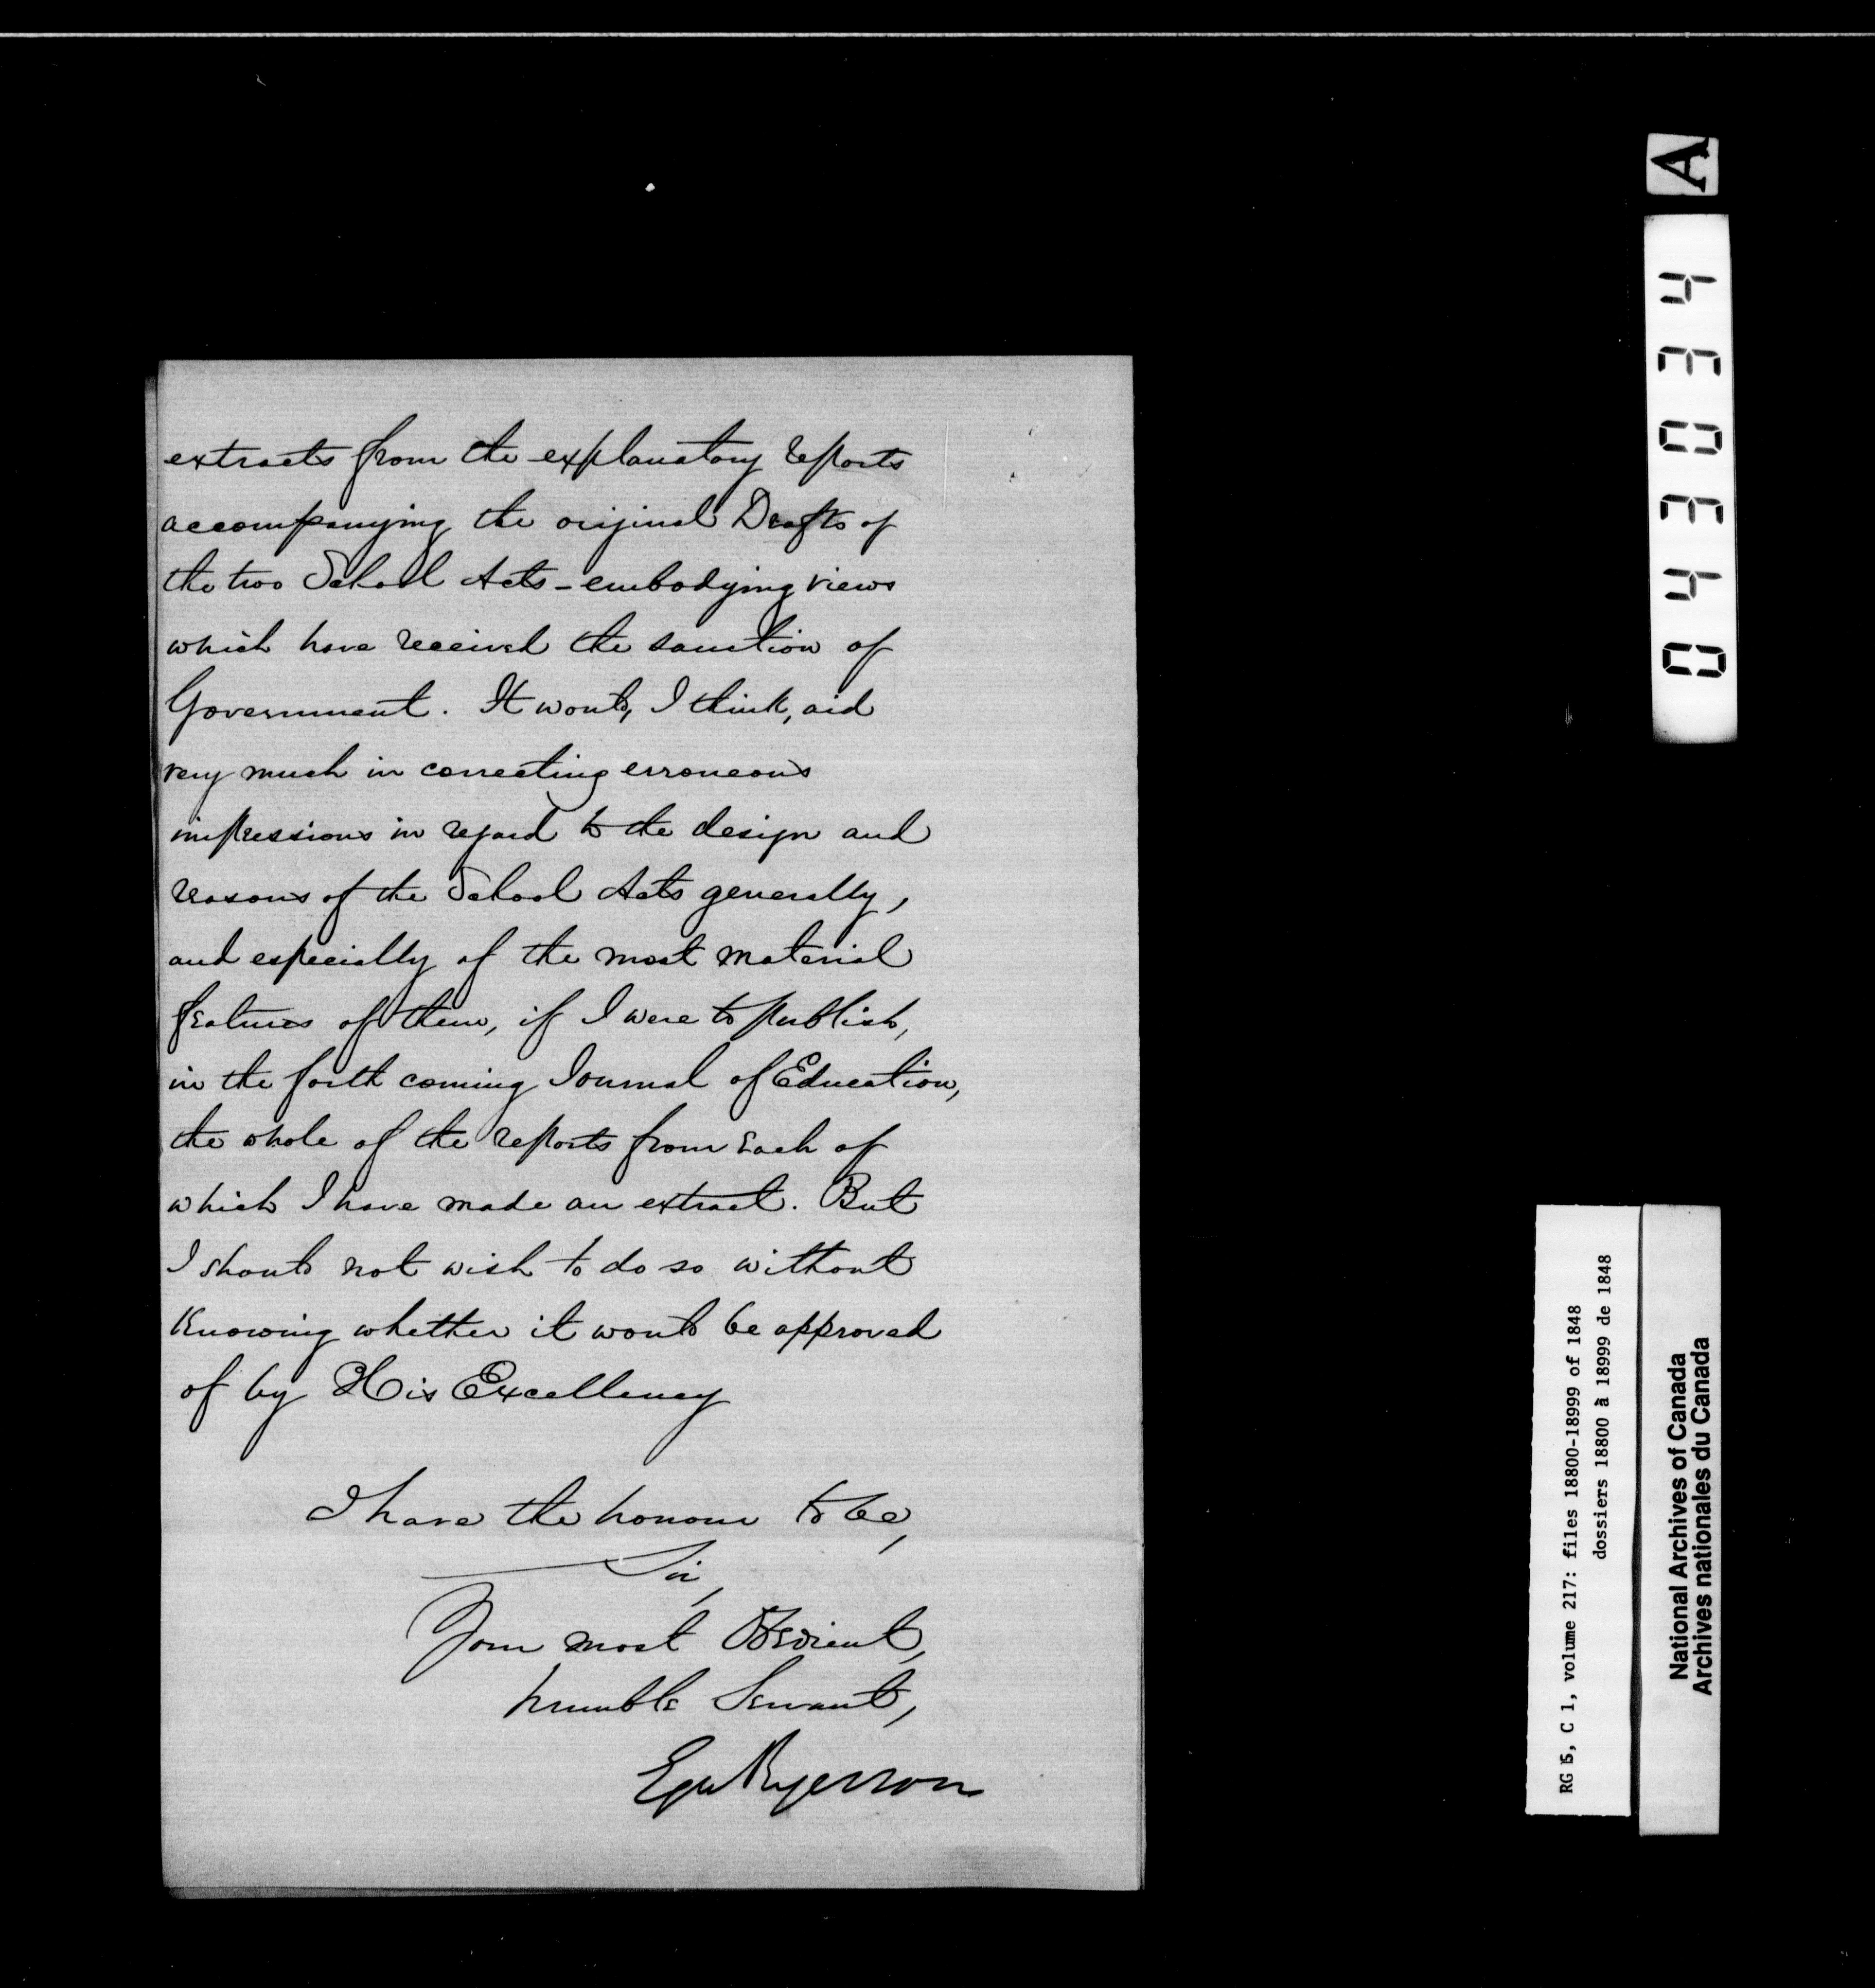 extracts from the explanatory reports
accompanying the original Drafts of
the two School Acts - embodying views
which have received the sanction of
Government. It would, I think, aid
very much in correcting erroneous
impressions in regard to the design and
reasons of the School Acts generally,
and especially of the most material
features of them, if I were to publish,
in the forth coming Journal of Education,
the whole of the reports from each of
which I have made an extract. But
I should not wish to do so without
knowing whether it would be approved
of by His Excellency
I have the honour to be,
Sir,
Your most Obedient,
humble Servant,
Egn Ryerson
A
043034
RG 5, C 1, volume 217: files 18800-18999 of 1848
dossiers 18800 à 18999 de 1848
National Archives of Canada
Archives nationales du Canada